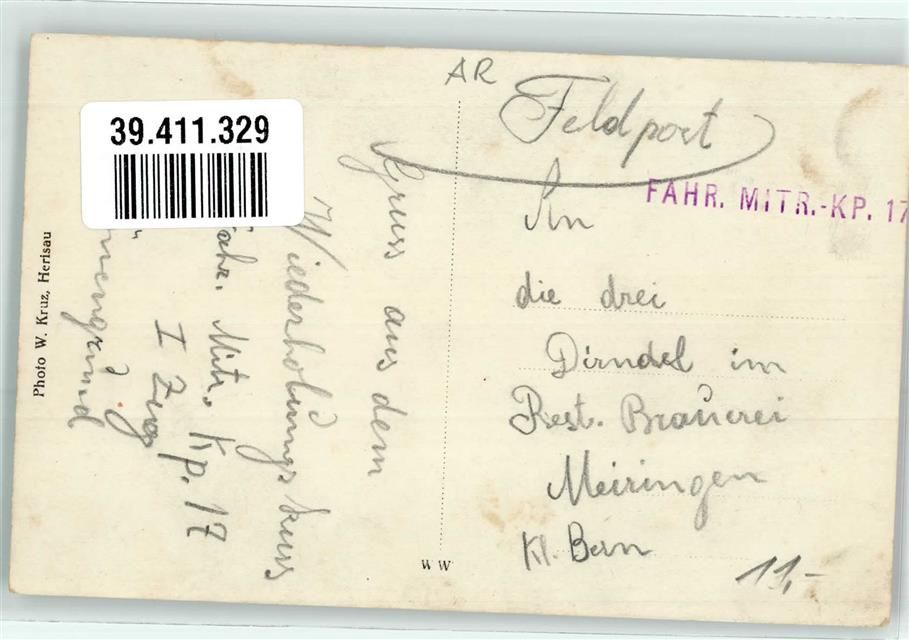 39.411.329
AR
Feldpost
FAHR. MITR.-KP. 17
An
die drei
Dirndel im
Rest. Brauerei
Meiringen
Kt. Bern
11,-
Gruss aus dem
Wiederholungskurs
Fahr. Mitr. Kp. 17
I Zug
Photo W. Kruz, Herisau
WW